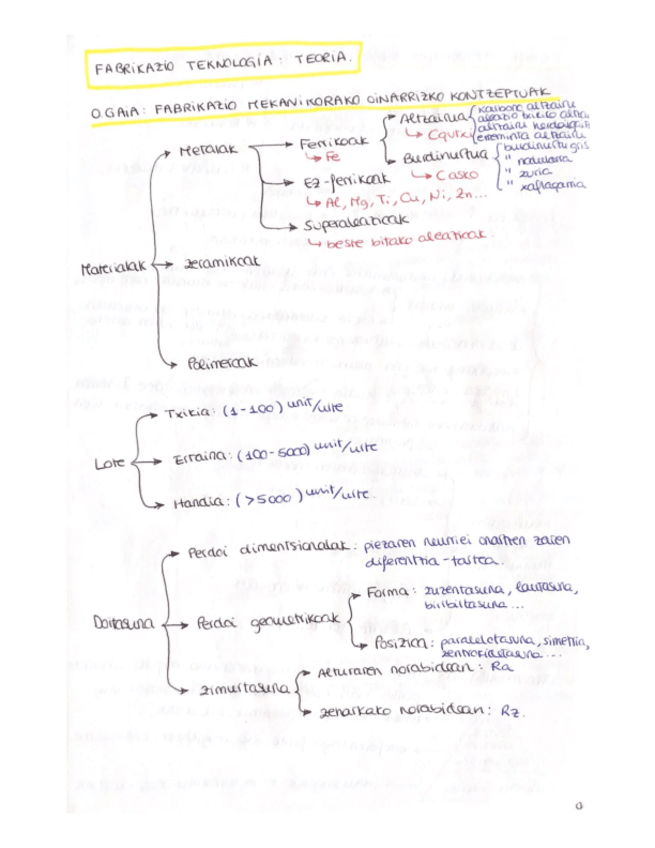 FABRIKAZIO TEKNOLOGIA: TEORIA.
0 GAIA: FABRIKAZIO MEKANIKORAKO OINARRIZKO KONTZEPTUAK
Materialak
Metalak
Ferrikoak
↳ Fe
Altzairua
↳ C gutxi
karbono altzairu
aleazio baxuko altza.
altzairu herdoilgaitz
erreminta altzairu
Burdinurtua
↳ C asko
burdinurtu gris
" nodularra
" zuria
" xaflagarria
Ez-ferrikoak
↳ Al, Mg, Ti, Cu, Ni, Zn...
Superaleazioak
↳ beste bitako aleazioak.
zeramikoak
Polimeroak
Lote
Txikia: (1-100) unit/urte
Ertaina: (100-5000) unit/urte
Handia: (>5000) unit/urte.
Doitasuna
Perdoi dimentsionalak: piezaren neurriei onartzen zaien
diferentzia-tartea.
Perdoi geometrikoak
Forma: zuzentasuna, lautasuna,
biribiltasuna...
Posizioa: paralelotasuna, simetria,
zentrokidetasuna...
zimurtasuna
Alturaren norabidean: Ra
zeharkako norabidean: Rz.